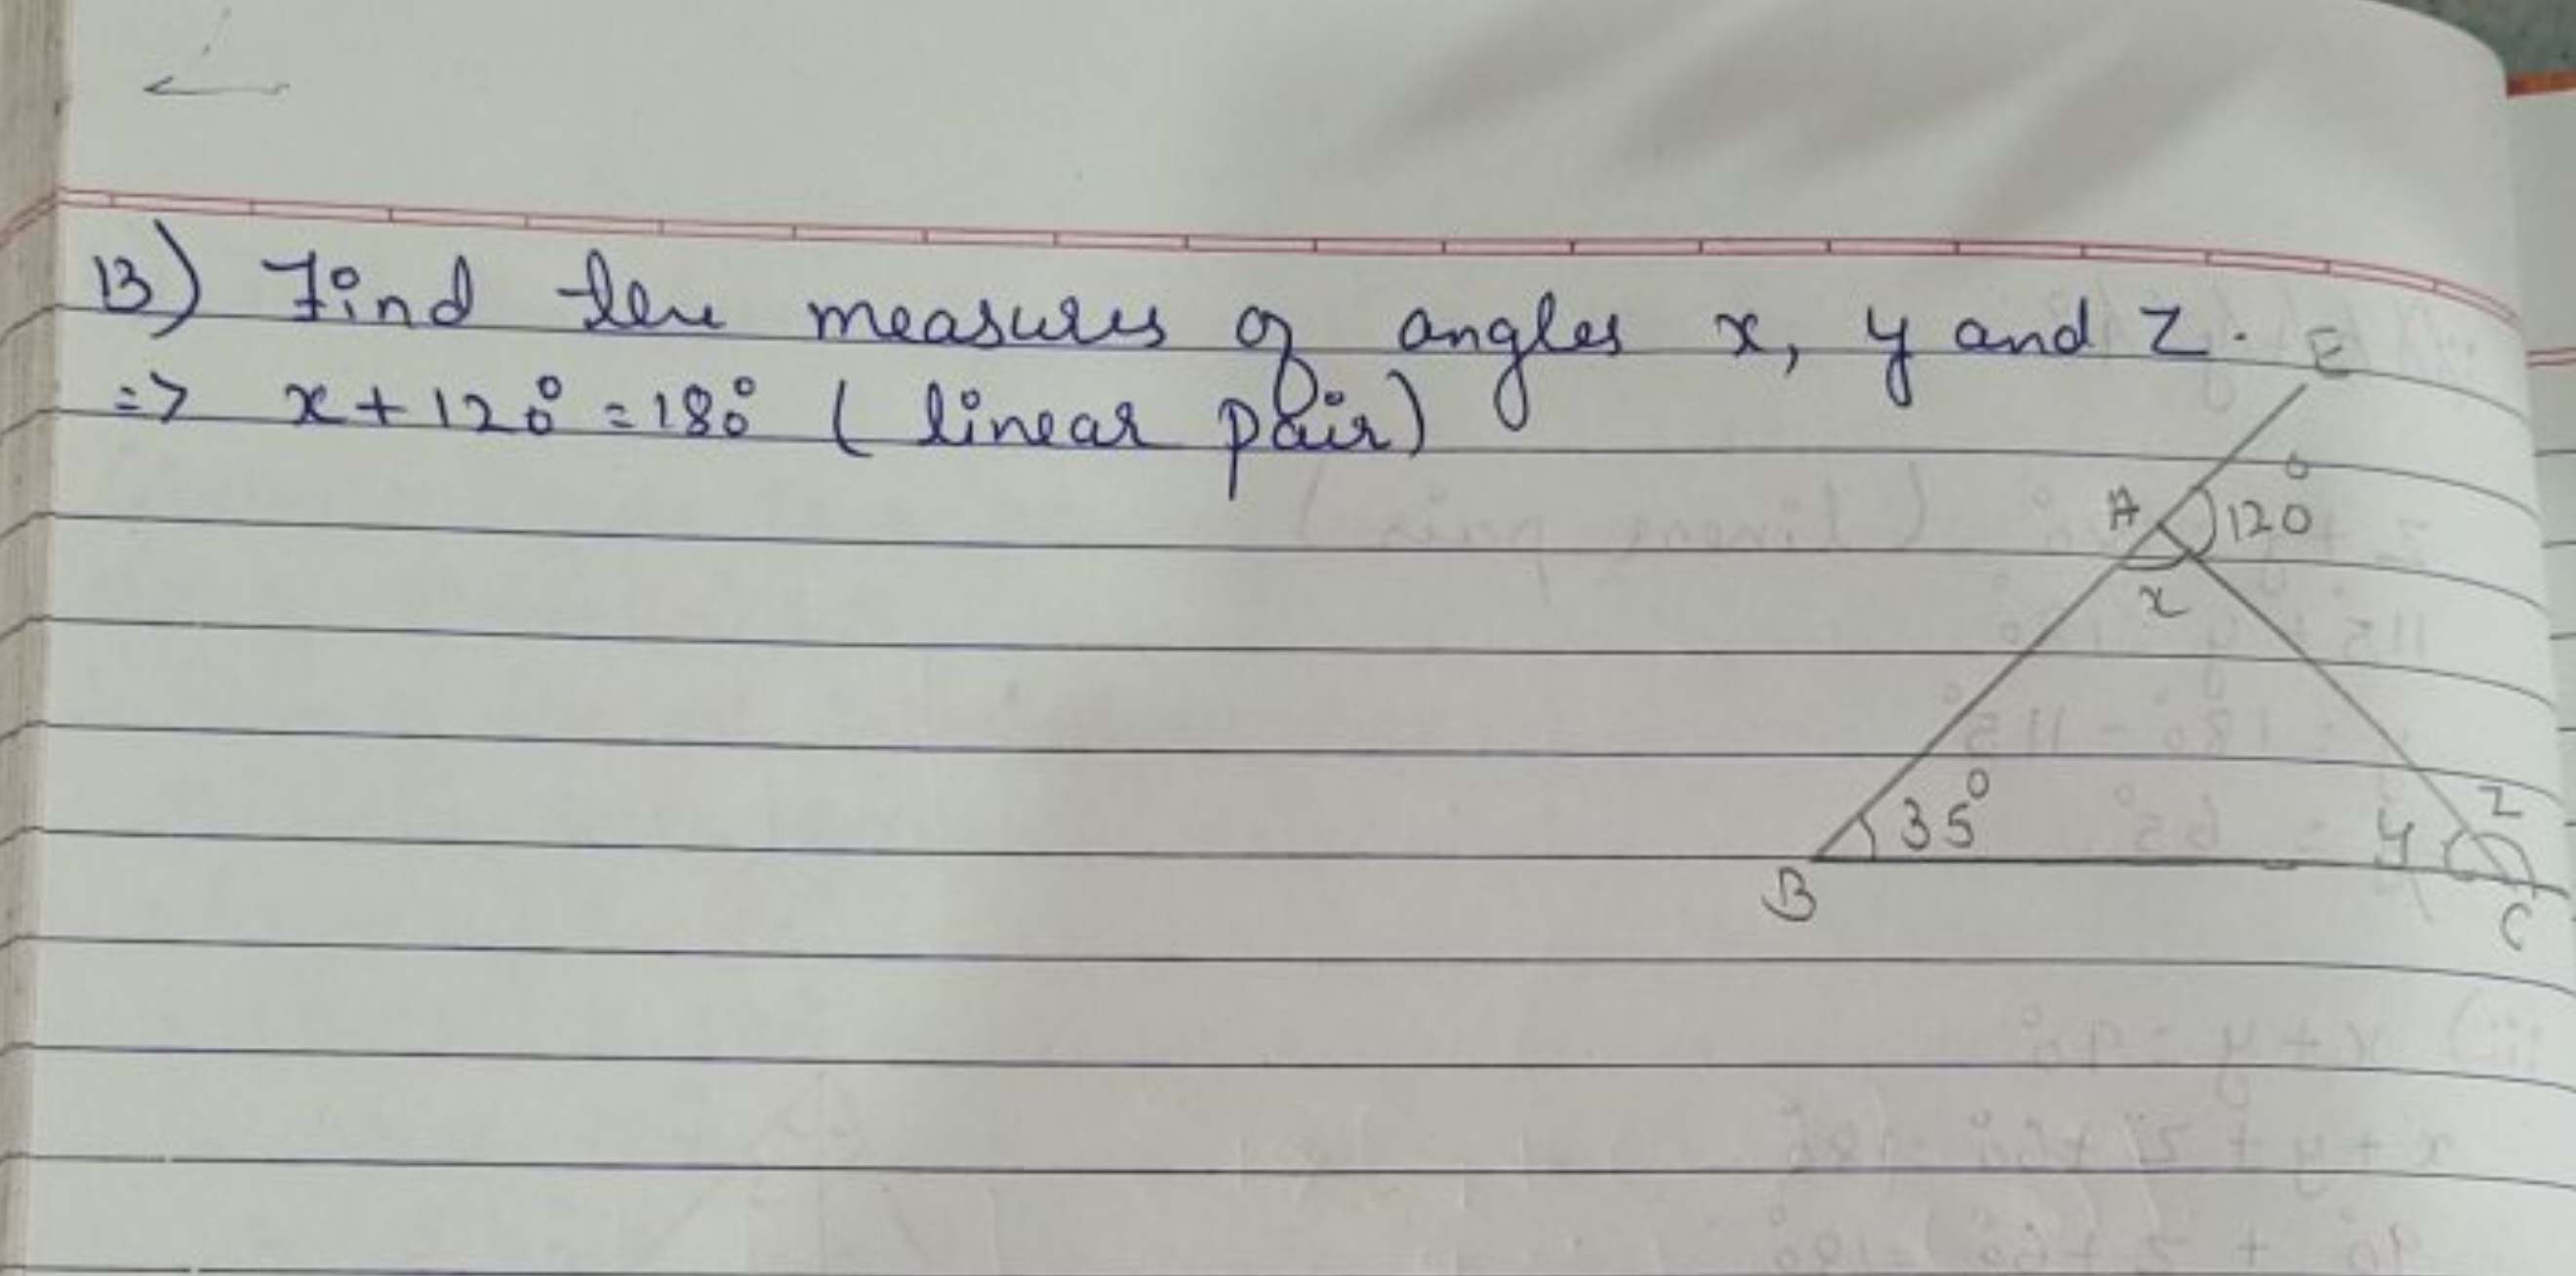 13) Find the measures of angles x, y and z.
=> x + 120° = 180° (linear pair)
E
A
120°
x
35°
z
y
B
C